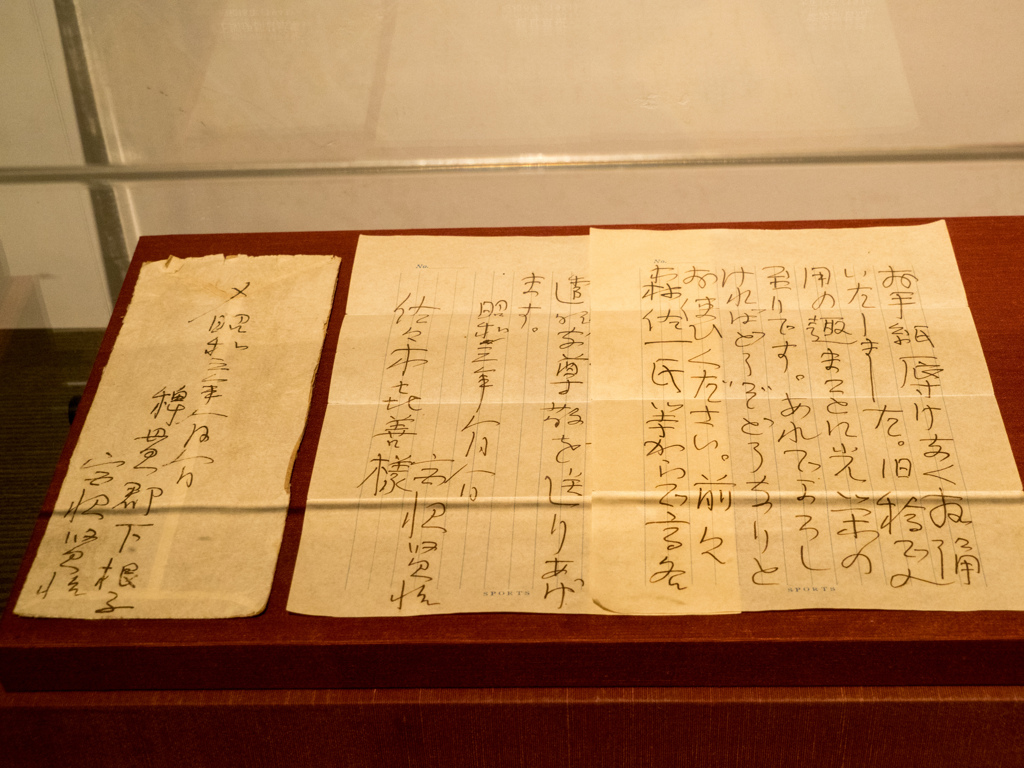 No.
お手紙辱けなく拝誦
いたしました。旧稿ご入
用の趣まことに光栄の
至りです。あれでよろし
ければどうぞどうなりと
お使ひください。前々
森佐一氏等からご高名
SPORTS
No.
尊敬を送りあげ
ます。
昭和三年八月八日
宮沢賢治
佐々木喜善様
SPORTS
〆
昭和三年八月八日
稗貫郡下根子
宮沢賢治